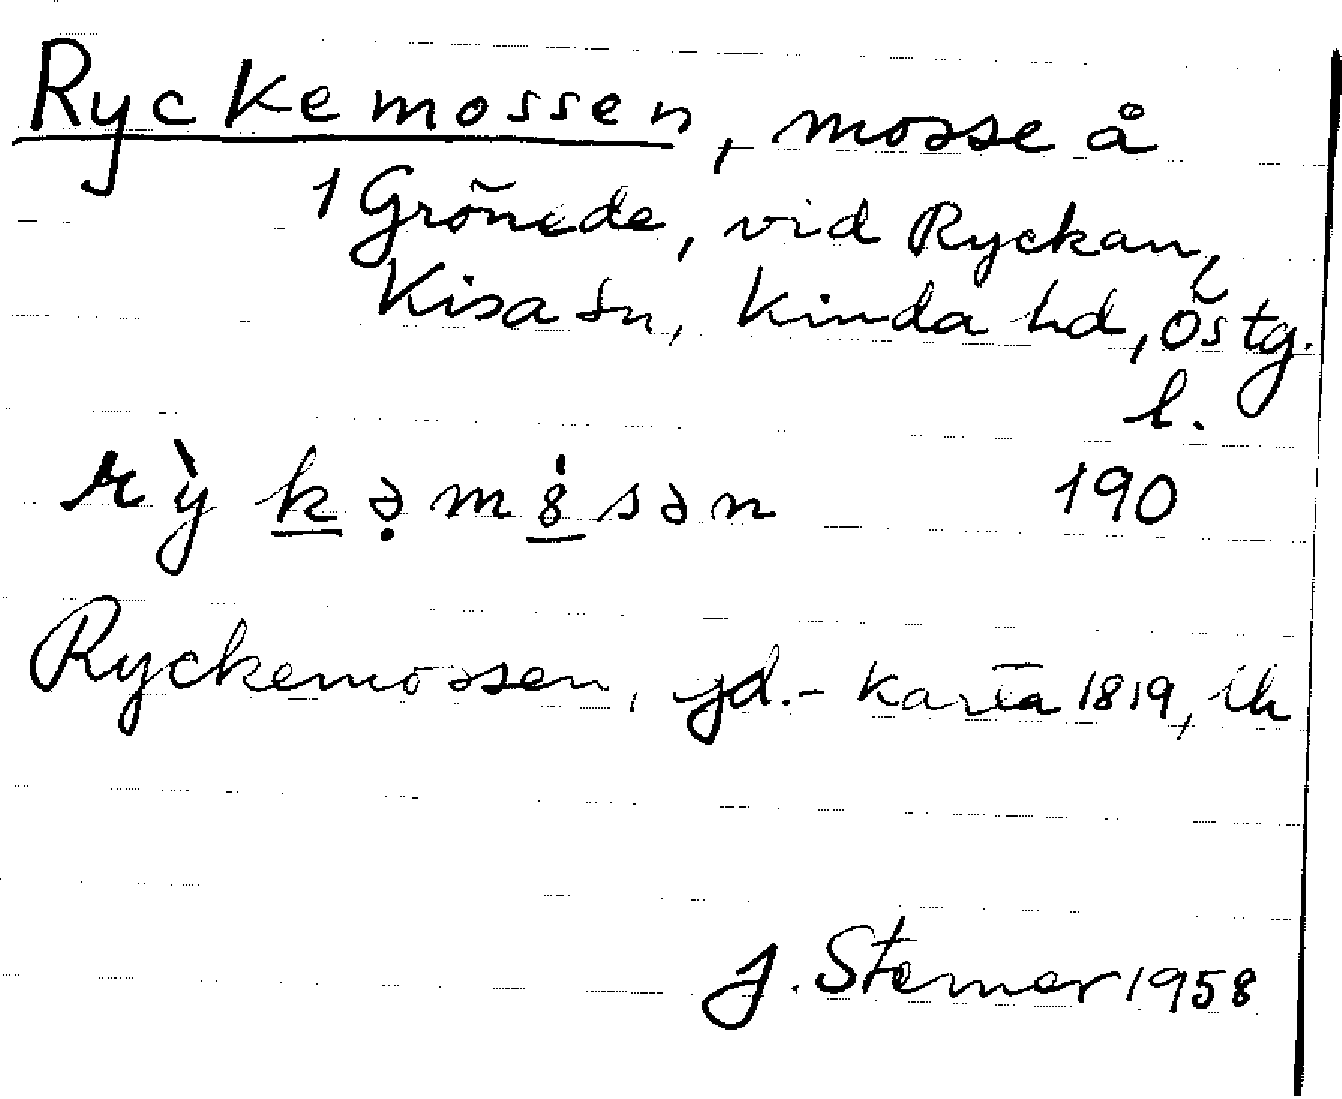 Ryckemossen, mosse å
1 Grönede, vid Ryckan,
Kisa sn, Kinda hd, Östg.
l.
rỳkə̣mȯ́sən 190
Ryckemossen, jd.- Karta 1819,
J. Sterner 1958